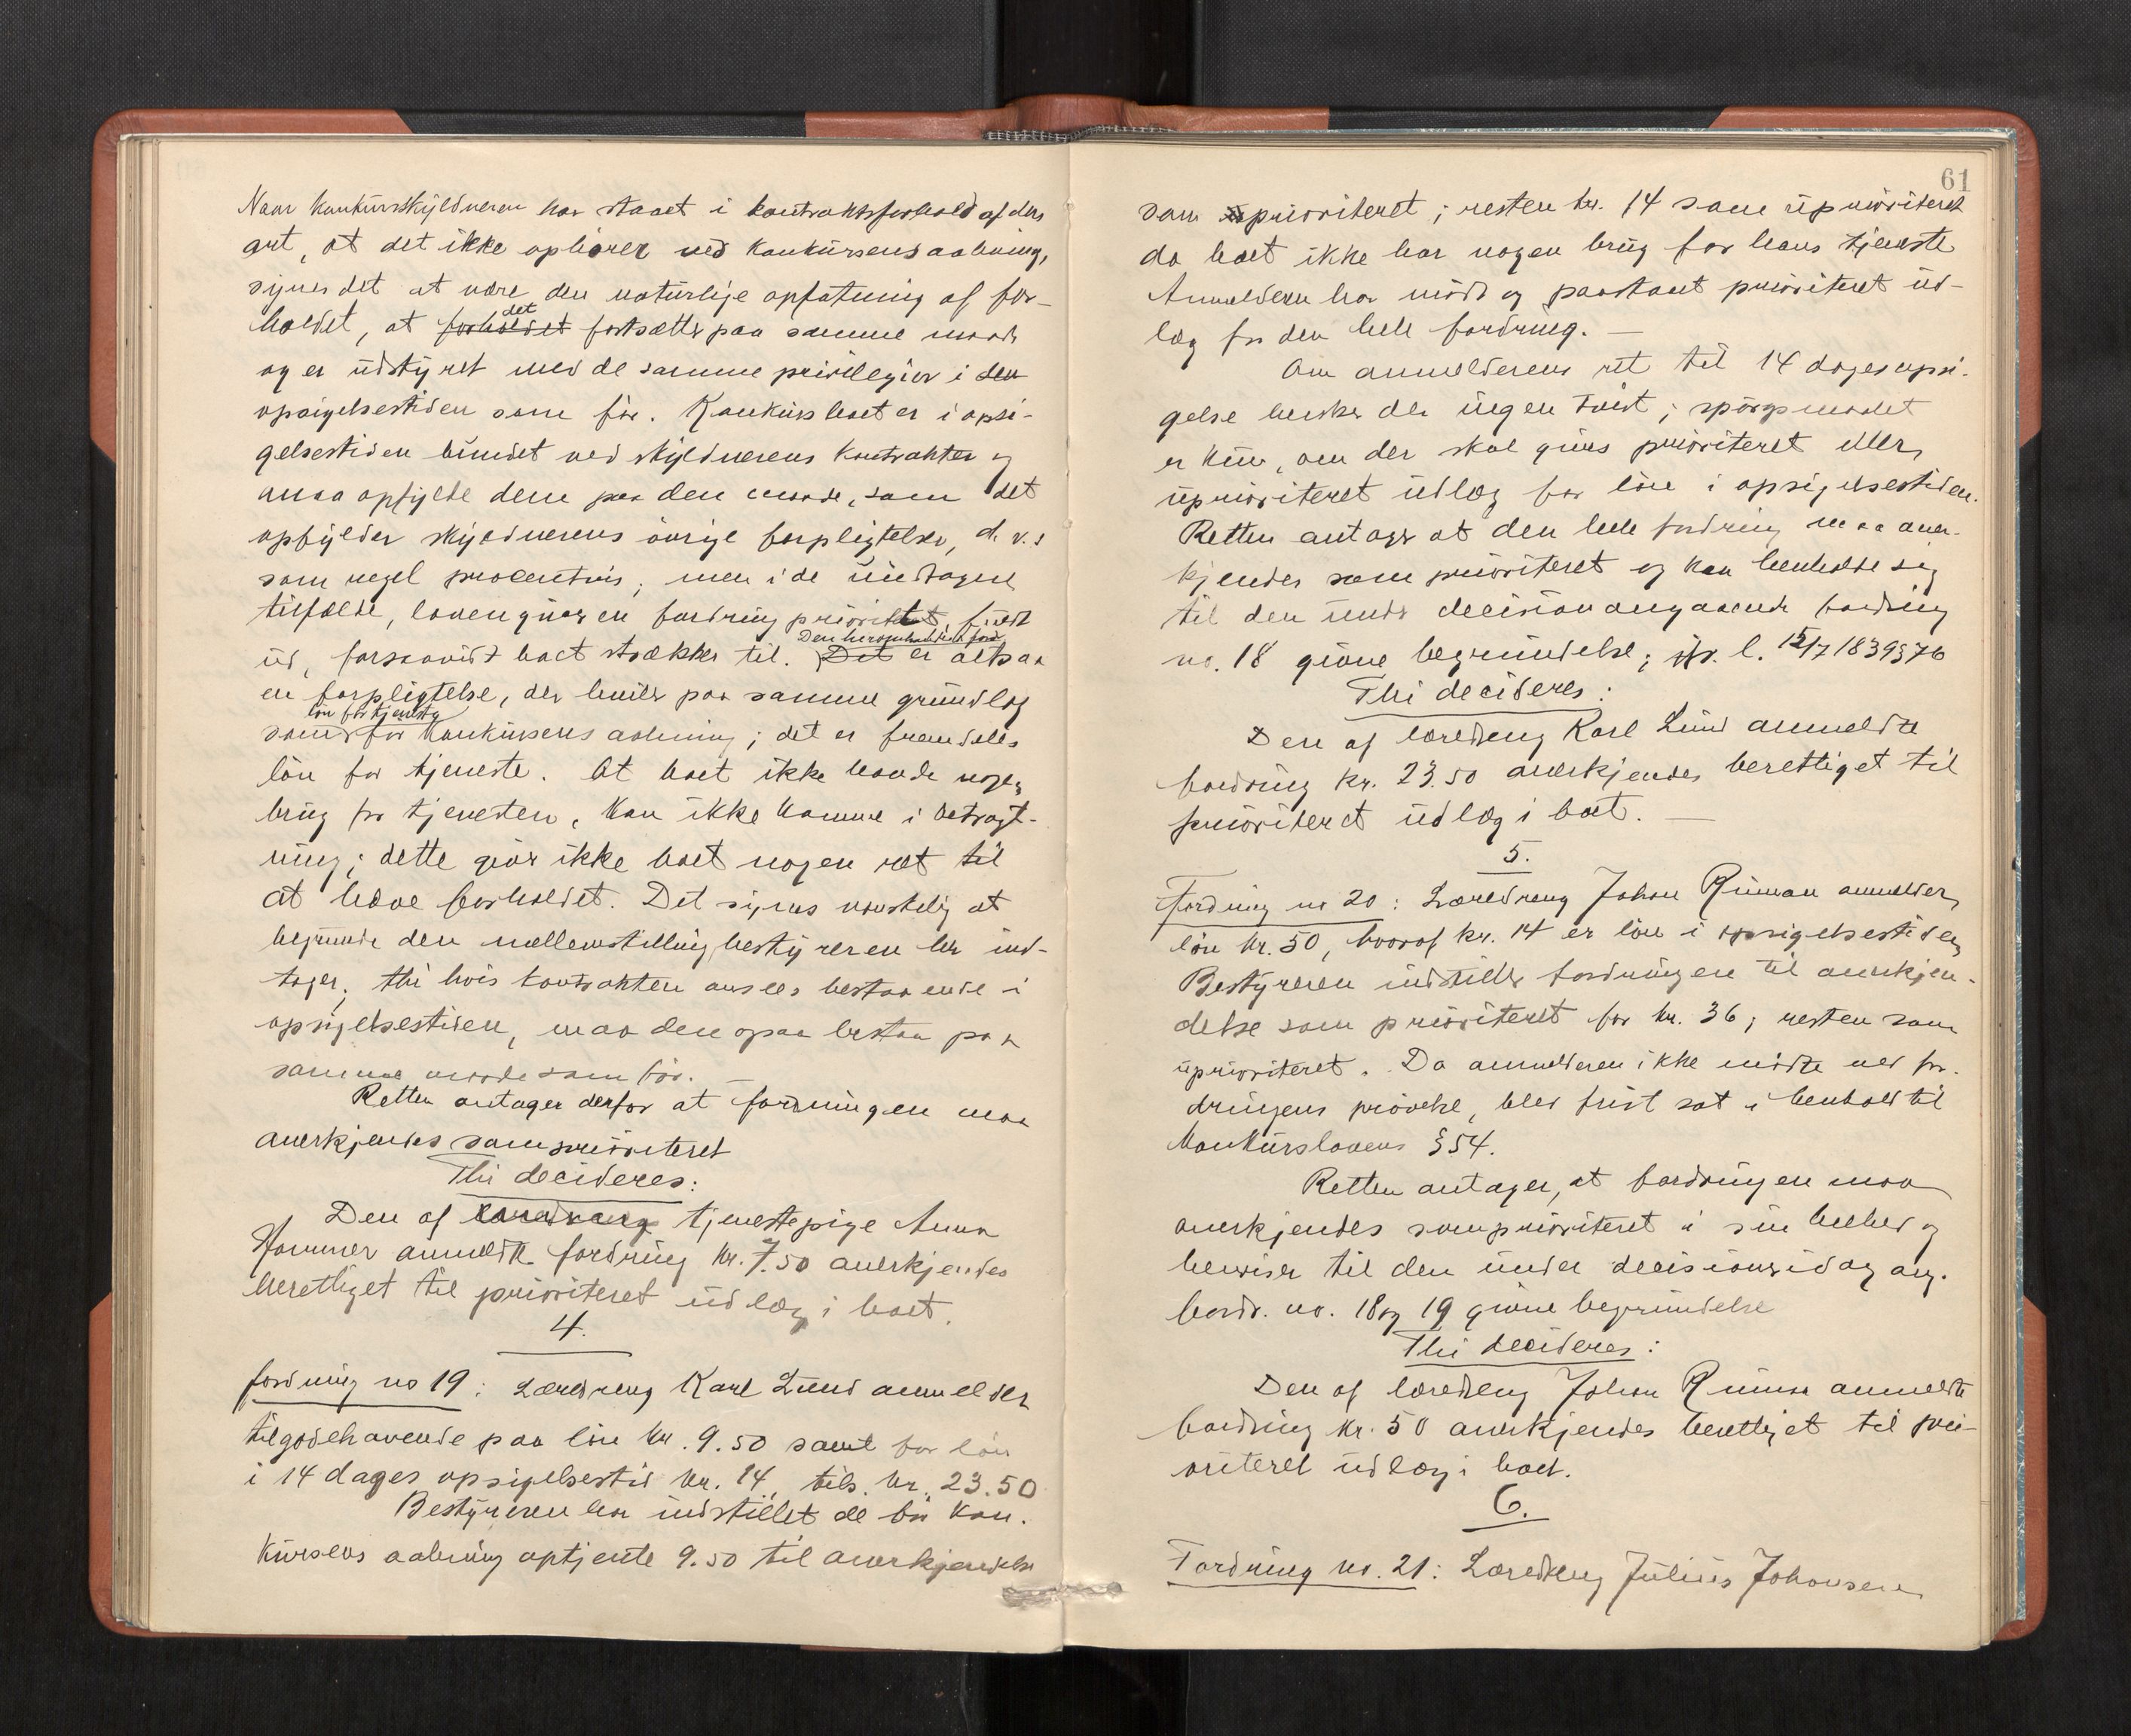 Naar konkursskyldneren har staaet i kontraktsforhold af den
art, at det ikke ophører ved konkursens aabning,
synes det at være den naturlige opfatning af for-
holdet, at forholdet det fortsætter paa samme maade
og er udstyret med de samme privilegier i den
opsigelsestiden som før. Konkursboet er i opsi-
gelsestiden bundet ved skyldnerens kontrakter og
maa opfylde dem paa den maade, som det
opfylder skyldnerens øvrige forpligtelser, d. v. s
som regel procentvis; men i de undtagne
tilfælde, loven gjør en fordring prioritet, fuldt
ud, forsaavidt boet strækker til. Det er altsaa
en forpligtelse, der hviler paa samme grundlag
som løn for tjeneste før konkursens aabning; det er fremdeles
løn for tjeneste. At boet ikke havde nogen
brug for tjenesten, kan ikke komme i betragt-
ning; dette gjør ikke boet nogen ret til
at hæve forholdet. Det synes vanskelig at
begrunde den mellemstilling bestyreren her ind-
tager, thi hvis kontrakten ansees bestaaende i
opsigelsestiden, maa den ogsaa bestaa paa
samme maade som før. —
Retten antager derfor at fordringen maa
anerkjendes som prioriteret
Thi decideres:
Den af læredreng tjenestepige Anna
Hammer anmeldte fordring kr. 7.50 anerkjendes
berettiget til prioriteret udlæg i boet.
4.
fordring no 19: Læredreng Karl Lund anmelder
tilgodehavende paa løn kr. 9.50 samt for løn
i 14 dages opsigelsestid kr. 14, tils. kr. 23.50
Bestyreren har indstillet de før kon-
kursens aabning optjente 9.50 til anerkjendelse
61
som prioriteret; resten kr. 14 som uprioriteret
da boet ikke har nogen brug for hans tjeneste
Anmelderen har mødt og paastaaet prioriteret ud-
læg for den hele fordring. —
Om anmelderens ret til 14 dages opsi-
gelse hersker der ingen tvist; spørgsmaalet
er kun, om der skal gives prioriteret eller
uprioriteret udlæg for løn i opsigelsestiden.
Retten antager at den hele fordring maa aner-
kjendes som prioriteret og kan henholde sig
til den under decision angaaende fordring
no. 18 givne begrundelse; jfr. l. 15/7 1839 § 76
Thi decideres:
Den af læredreng Karl Lund anmeldte
fordring kr. 23.50 anerkjendes berettiget til
prioriteret udlæg i boet. —
5.
Fordring no 20: Læredreng Johan Ruman anmelder
løn kr. 50, hvoraf kr. 14 er løn i opsigelsestiden
Bestyreren indstiller fordringen til anerkjen-
delse som prioriteret for kr. 36; resten som
uprioriteret. Da anmelderen ikke mødte ved for-
dringens prøvelse, blev frist sat i henhold til
konkurslovens § 54.
Retten antager, at fordringen maa
anerkjendes som prioriteret i sin helhed og
henviser til den under decisioner idag ang.
fordr. no. 18 og 19 givne begrundelse
Thi decideres:
Den af læredreng Johan Ruman anmeldte
fordring kr. 50 anerkjendes berettiget til pri-
oriteret udlæg i boet.
6.
Fordring no. 21: Læredreng Julius Johansen